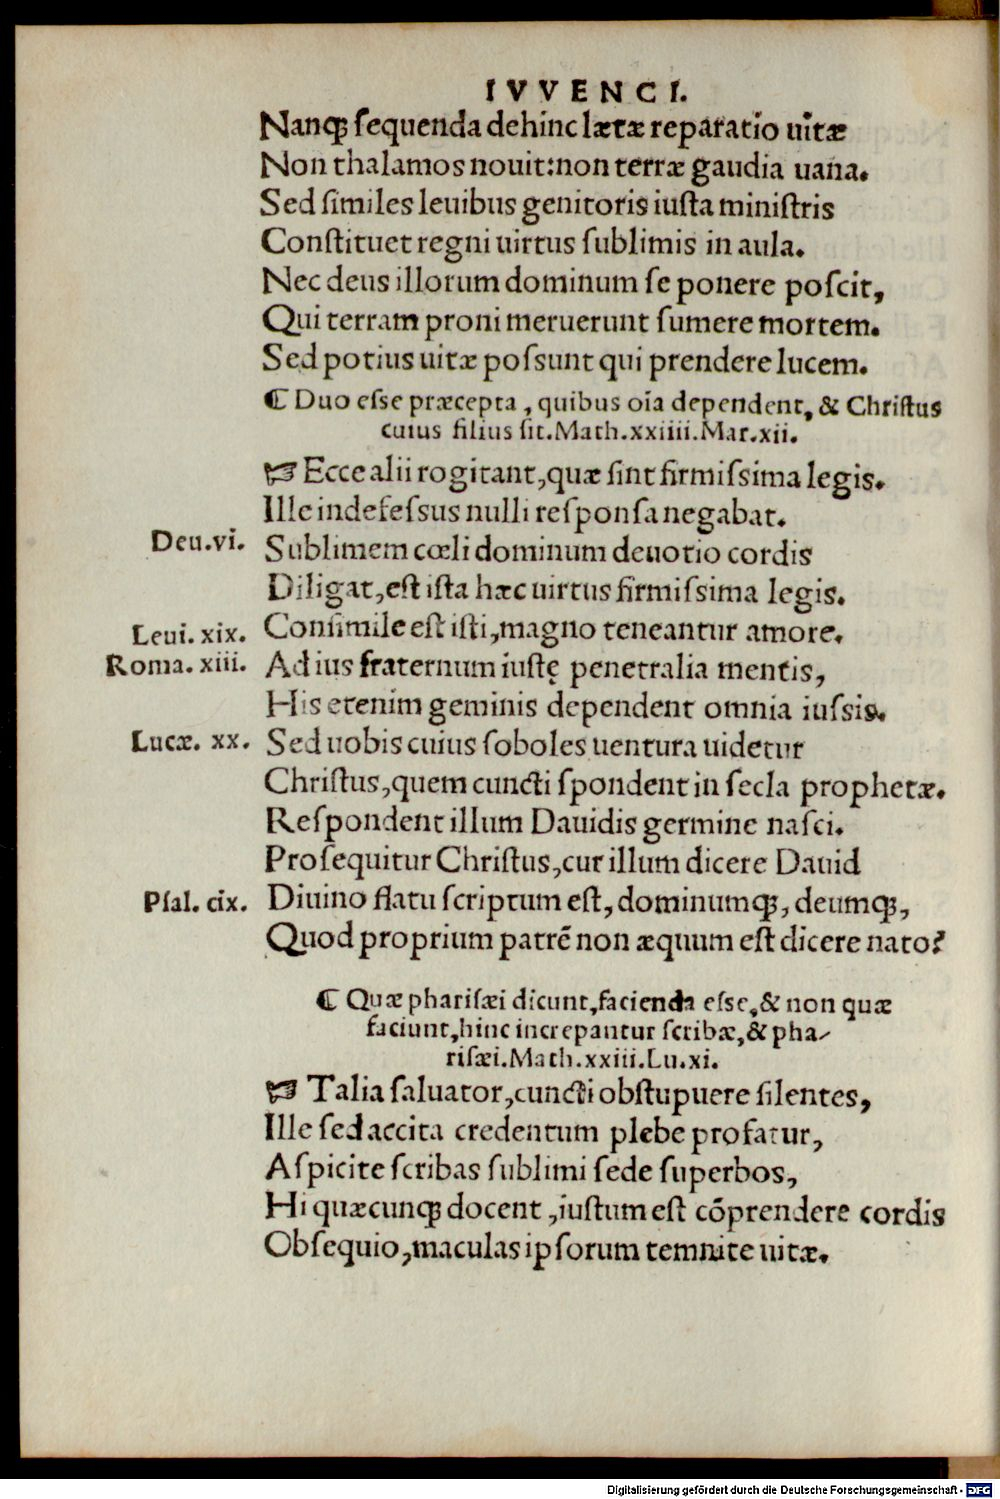 IVVENCI.
Nanq; ſequenda dehinc lætæ reparatio uitæ
Non thalamos nouit:non terræ gaudia uana.
Sed ſimiles leuibus genitoris iuſta miniſtris
Conſtituet regni uirtus ſublimis in aula.
Nec deus illorum dominum ſe ponere poſcit,
Qui terram proni meruerunt ſumere mortem.
Sed potius uitæ poſsunt qui prendere lucem.
⸿ Duo eſse præcepta, quibus oīa dependent, & Chriſtus
cuius filius ſit.Math.xxiiii.Mar.xii.
☞ Ecce alii rogitant,quæ ſint firmiſsima legis.
Ille indefeſsus nulli reſponſa negabat.
Deu.vi. Sublimem cœli dominum deuotio cordis
Diligat,eſt iſta hæc uirtus firmiſsima legis.
Leui. xix. Conſimile eſt iſti,magno teneantur amore.
Roma. xiii. Ad ius fraternum iuſtę penetralia mentis,
His etenim geminis dependent omnia iuſsis.
Lucæ. xx. Sed uobis cuius ſoboles uentura uidetur
Chriſtus,quem cuncti ſpondent in ſecla prophetæ.
Reſpondent illum Dauidis germine naſci.
Proſequitur Chriſtus,cur illum dicere Dauid
Pſal. cix. Diuino flatu ſcriptum eſt, dominumq;, deumq;,
Quod proprium patrē non æquum eſt dicere nato?
⸿ Quæ phariſæi dicunt,facienda eſse,& non quæ
faciunt,hinc increpantur ſcribæ,& pha-
riſæi.Math.xxiii.Lu.xi.
☞ Talia ſaluator,cuncti obſtupuere ſilentes,
Ille ſed accita credentum plebe profatur,
Aſpicite ſcribas ſublimi ſede ſuperbos,
Hi quæcunq; docent ,iuſtum eſt cōprendere cordis
Obſequio,maculas ipſorum temnite uitæ.
Digitalisierung gefördert durch die Deutsche Forschungsgemeinschaft - DFG